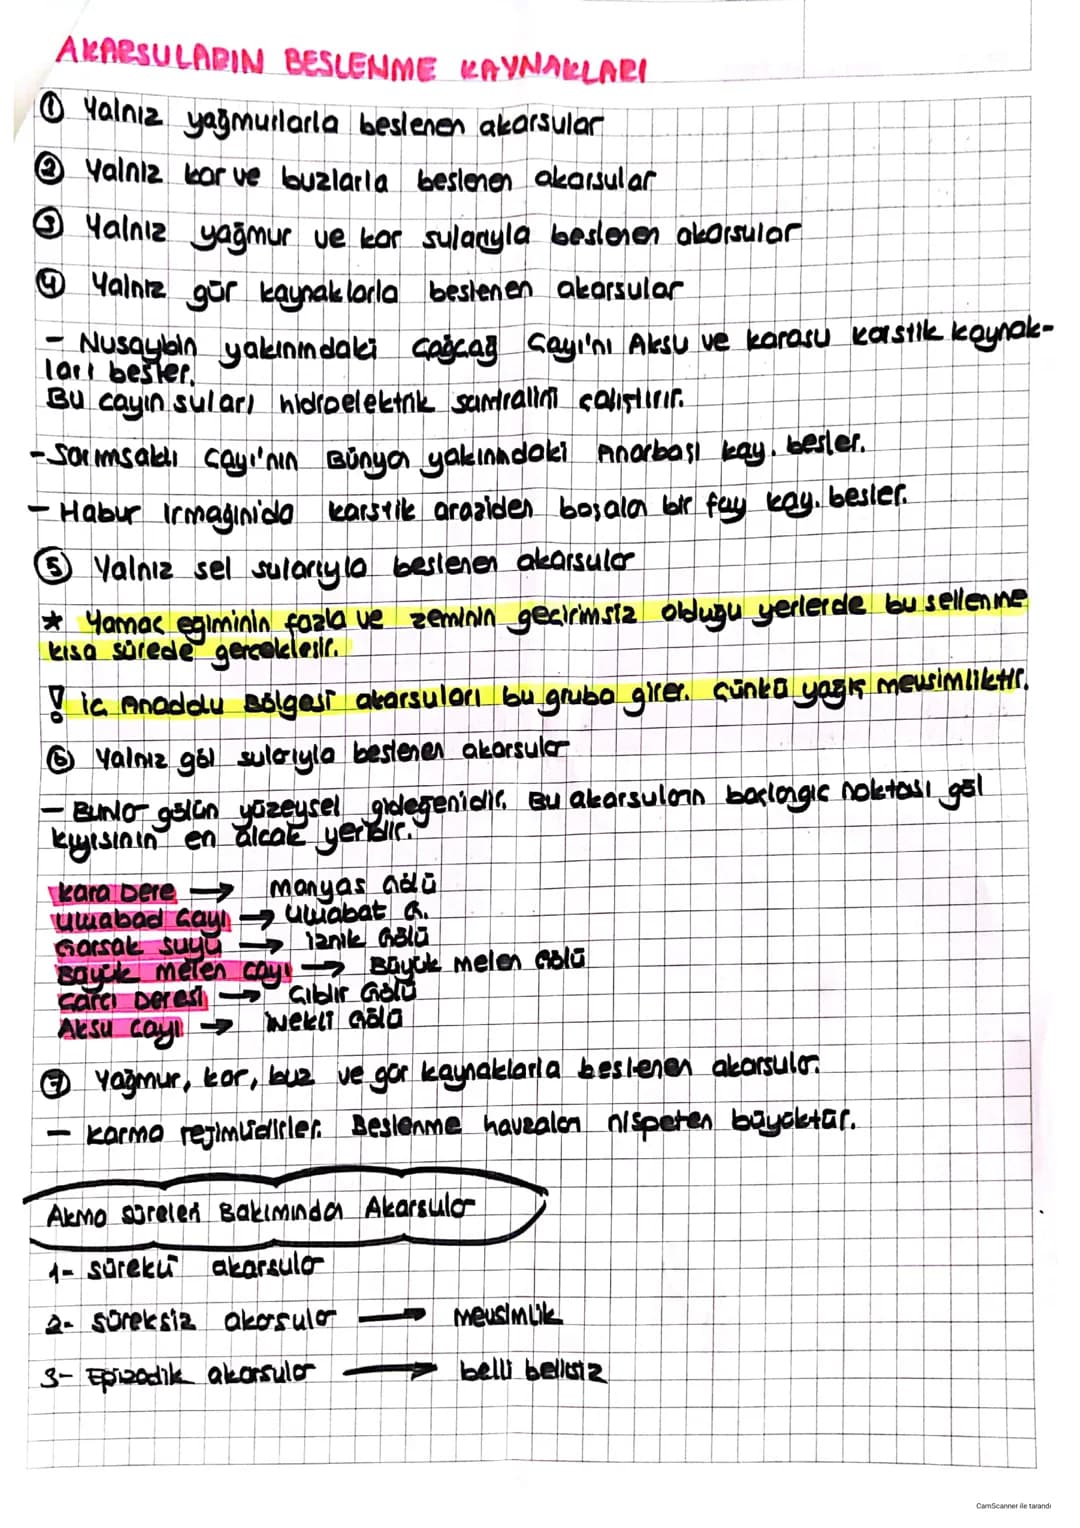 AKARSULARIN BESLENME KAYNAKLARI
① Yalnız yağmurlarla beslenen akarsular
② Yalnız kar ve buzlarla beslenen akarsular
③ Yalnız yağmur ve kar sularıyla beslenen akarsular
④ Yalnız gür kaynaklarla beslenen akarsular
- Nusaybin yakınındaki Çağçağ Çayı'nı Aksu ve karasu karstik kaynak-
ları besler.
Bu çayın suları hidroelektrik santralini çalıştırır.
- Sarımsaklı Çayı'nın Bünyan yakınındaki Pınarbaşı kay. besler.
- Habur Irmağını'da karstik araziden boşalan bir fay kay. besler.
⑤ Yalnız sel sularıyla beslenen akarsular
* Yamaç eğiminin fazla ve zeminin geçirimsiz olduğu yerlerde bu sellenme
kısa sürede gerçekleşir.
! iç Anadolu Bölgesi akarsuları bu gruba girer. Çünkü yağış mevsimliktir.
⑥ Yalnız göl sularıyla beslenen akarsular
- Bunlar gölün yüzeysel gideğenidir. Bu akarsuların başlangıç noktası göl
kıyısının en alçak yeridir.
Kara Dere → Manyas Gölü
Uluabad Çayı → Uluabat G.
Garsak suyu → iznik Gölü
Büyük melen çayı → Büyük melen Gölü
Çarcı Deresi → Çıblır Gölü
Aksu Çayı → inekli Gölü
⑦ Yağmur, kar, buz ve gür kaynaklarla beslenen akarsular.
- Karma rejimlidirler. Beslenme havzaları nispeten büyüktür.
Akma süreleri Bakımından Akarsular
1- sürekli akarsular
2- süreksiz akarsular → Mevsimlik
3- Epizodik akarsular → belli belisiz
CamScanner ile tarandı